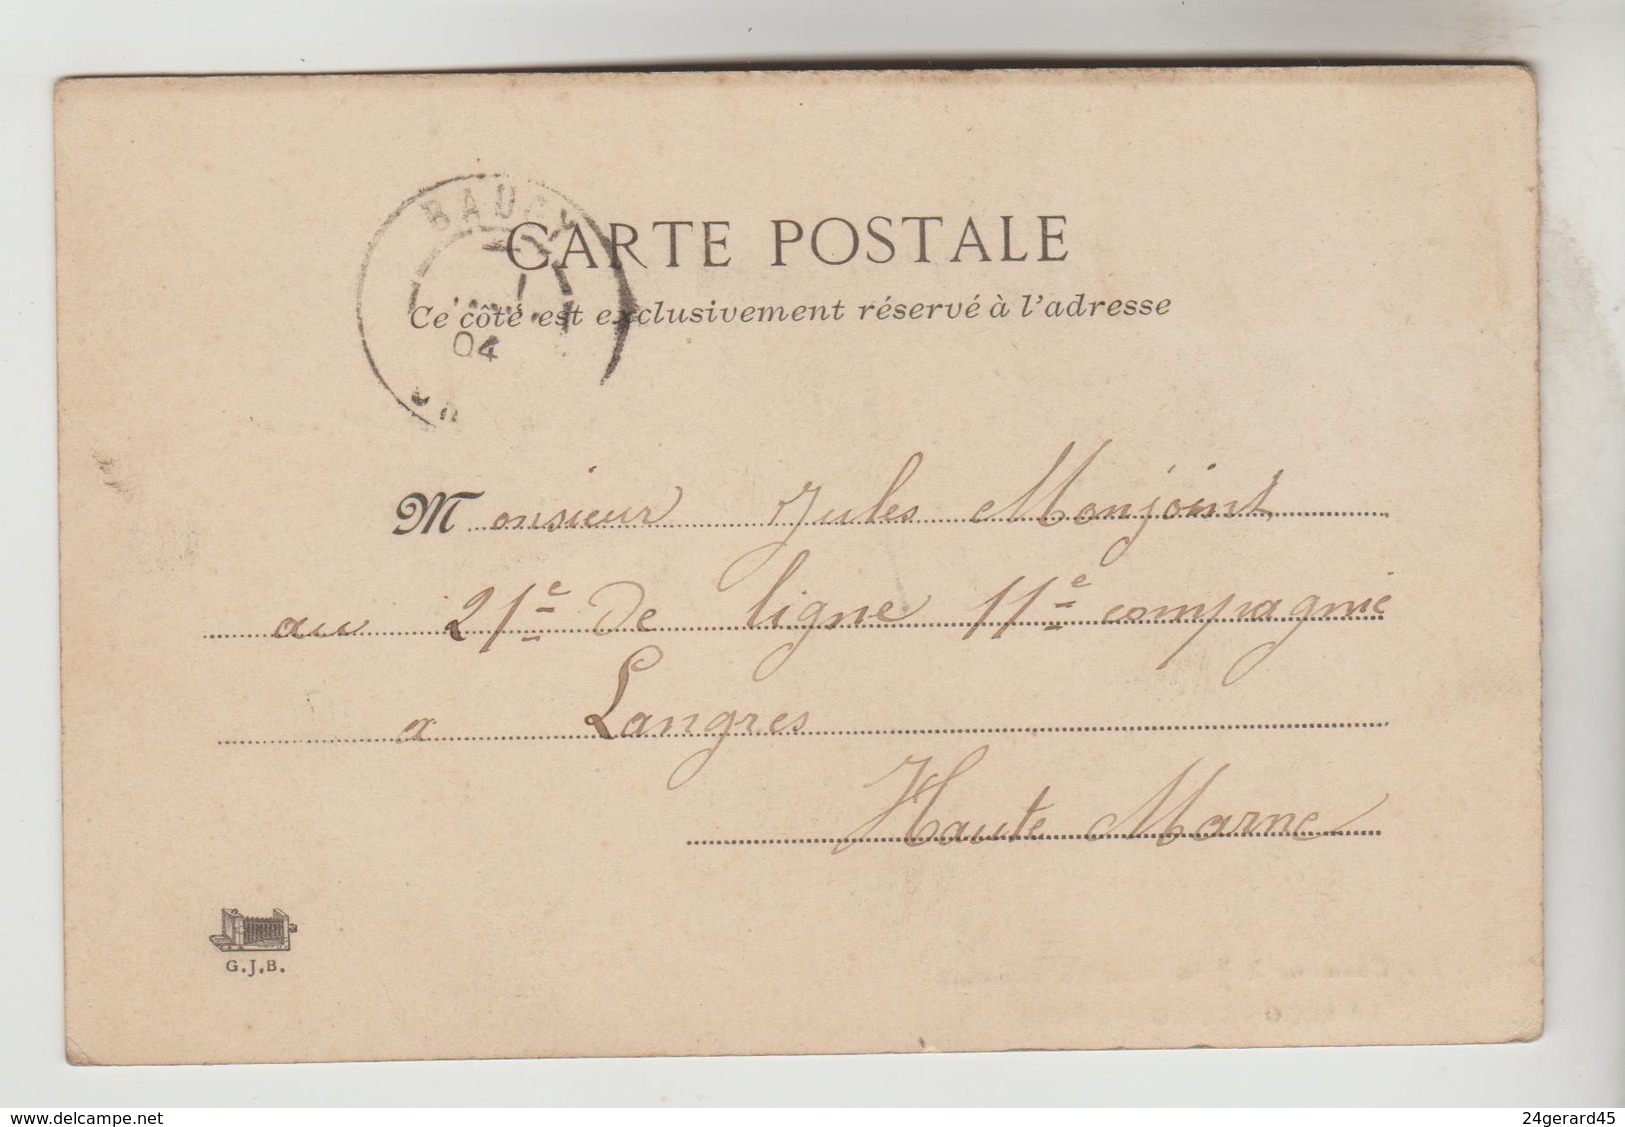 CARTE POSTALE
Ce côté est exclusivement réservé à l'adresse
04
Monsieur Jules Monjoint
au 21e de ligne 11e compagnie
a Langres
Haute Marne
G.J.B.
www.delcampe.net
24gerard45